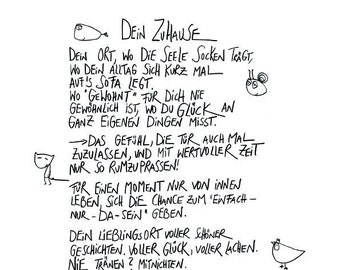 DEIN ZUHAUSE
DEIN ORT, WO DIE SEELE SOCKEN TRÄGT,
WO DEIN ALLTAG SICH KURZ MAL
AUF'S SOFA LEGT.
WO "GEWOHNT" FÜR DICH NIE
GEWÖHNLICH IST, WO DU GLÜCK AN
GANZ EIGENEN DINGEN MISST.
→ DAS GEFÜHL, DIE TÜR AUCH MAL
ZUZULASSEN, UND MIT WERTVOLLER ZEIT
NUR SO RUMZUPRASSEN!
FÜR EINEN MOMENT NUR VON INNEN
LEBEN, SICH DIE CHANCE ZUM "EINFACH-
NUR-DA-SEIN" GEBEN.
DEIN LIEBLINGSORT VOLLER SCHÖNER
GESCHICHTEN. VOLLER GLÜCK, VOLLER LACHEN.
NIE TRÄNEN? MITNICHTEN.